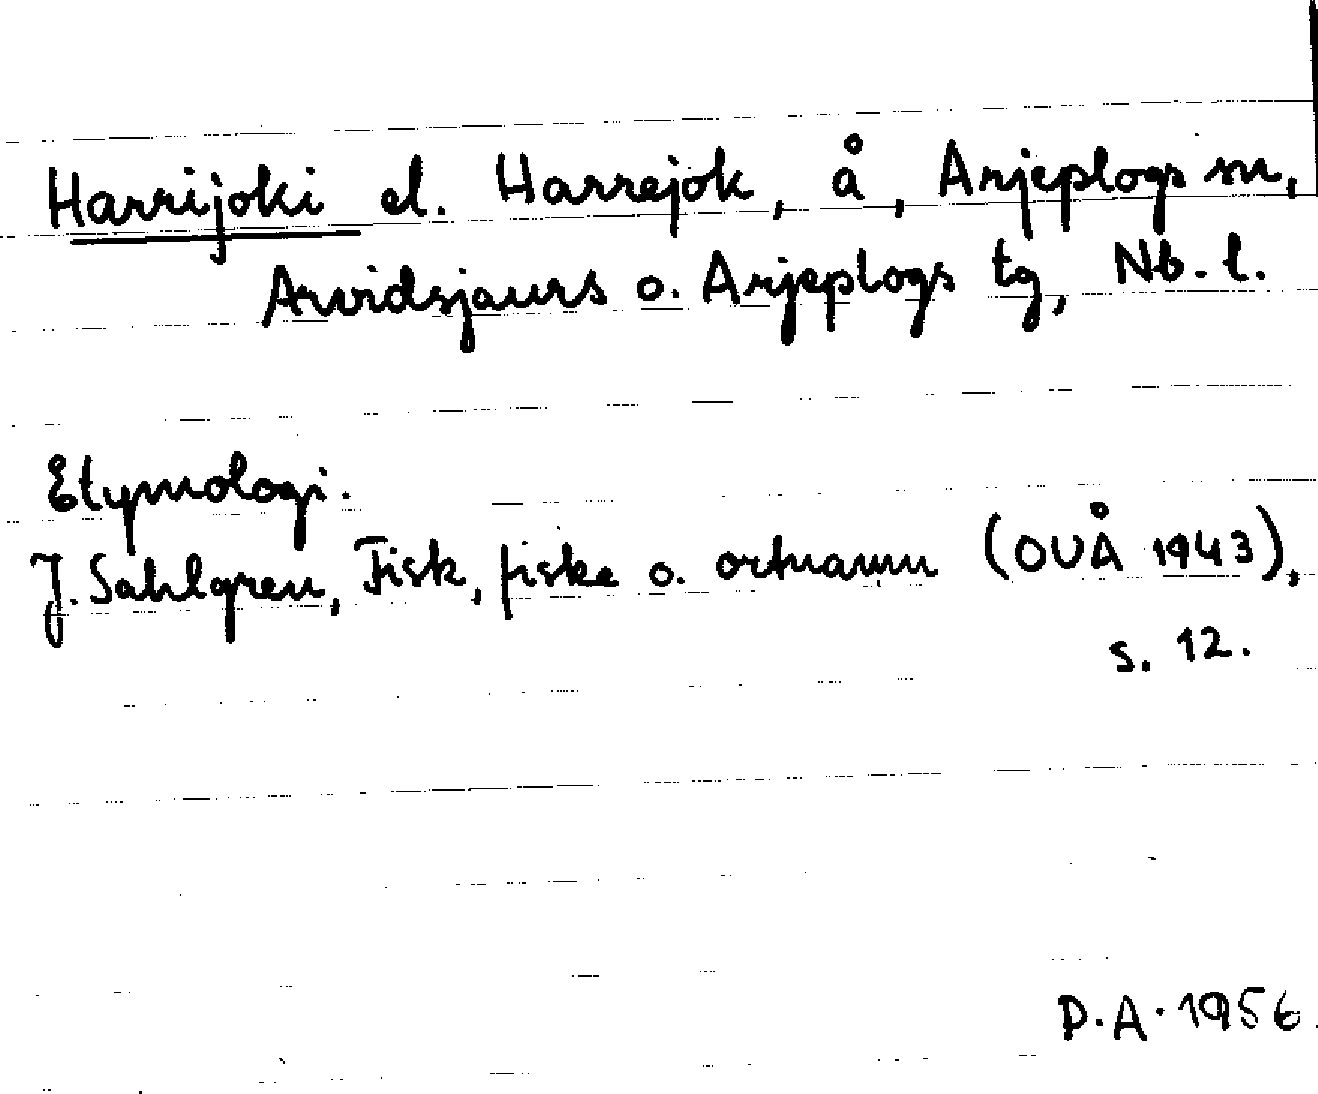 Harrijoki el. Harrejok, å, Arjeplogs sn,
Arvidsjaurs o. Arjeplogs tg, Nb. l.
Etymologi.
J. Sahlgren, Fisk, fiske o. ortnamn (OUÅ 1943),
s. 12.
D.A. 1956